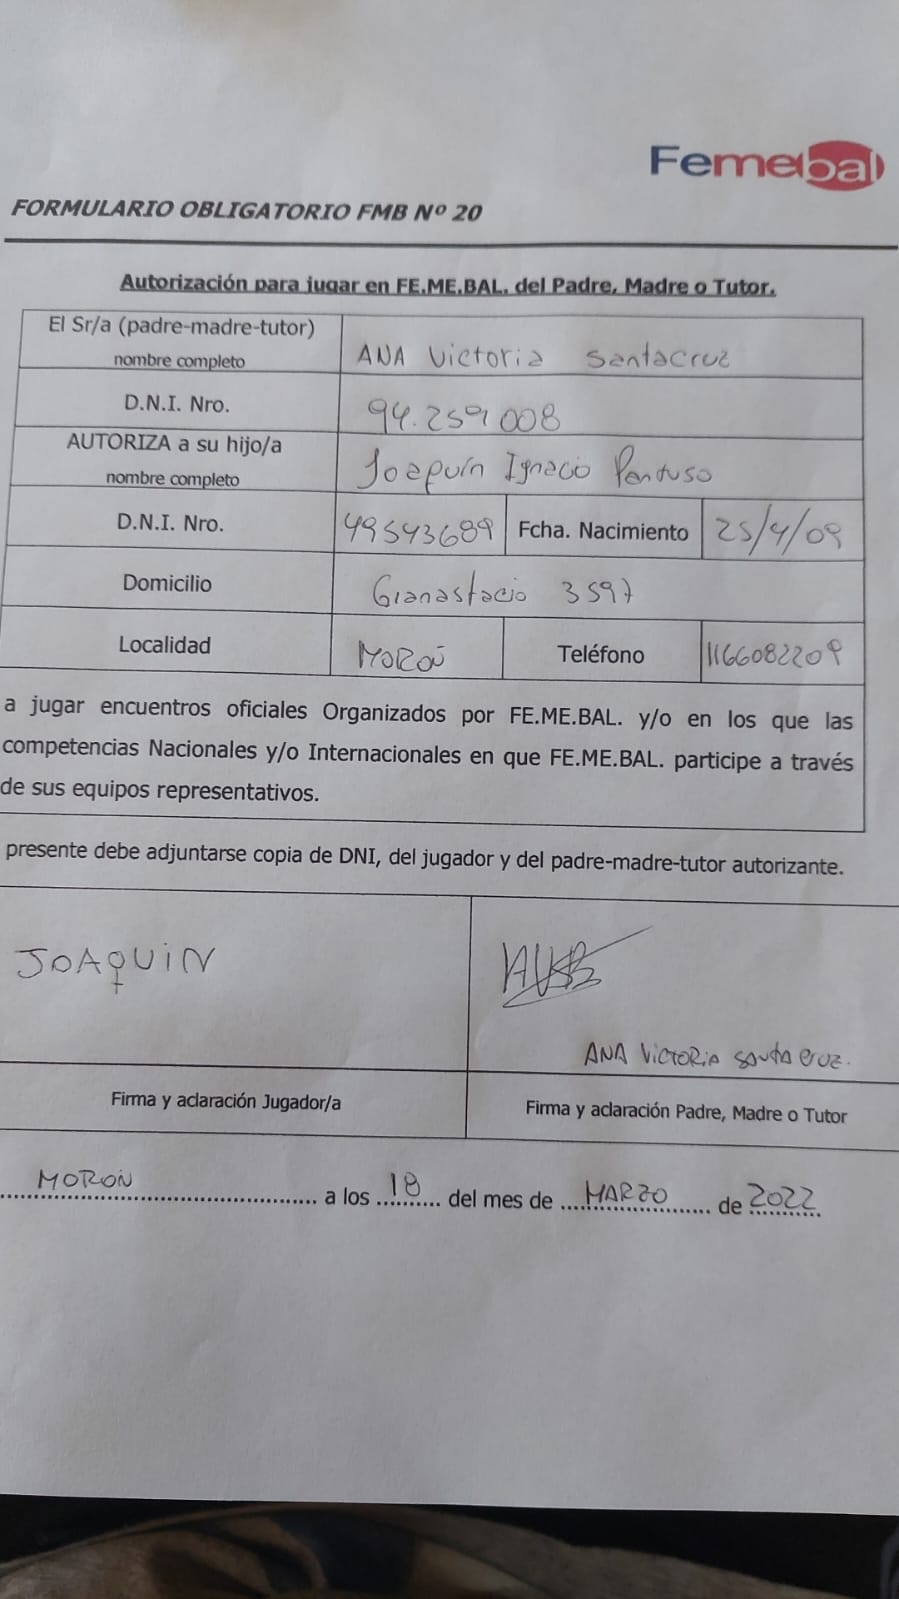 Femebal
FORMULARIO OBLIGATORIO FMB Nº 20
Autorización para jugar en FE.ME.BAL. del Padre, Madre o Tutor.
El Sr/a (padre-madre-tutor)
nombre completo
ANA Victoria Santacruz
D.N.I. Nro.
94.259 008
AUTORIZA a su hijo/a
nombre completo
Joaquín Ignacio Pantuso
D.N.I. Nro.
49543689
Fcha. Nacimiento
25/4/09
Domicilio
Gianastacio 3597
Localidad
MORON
Teléfono
1166082209
a jugar encuentros oficiales Organizados por FE.ME.BAL. y/o en los que las
competencias Nacionales y/o Internacionales en que FE.ME.BAL. participe a través
de sus equipos representativos.
presente debe adjuntarse copia de DNI, del jugador y del padre-madre-tutor autorizante.
JOAQUIN
ANA VICTORIA Santa Cruz.
Firma y aclaración Jugador/a
Firma y aclaración Padre, Madre o Tutor
MORON a los 18 del mes de MARZO de 2022